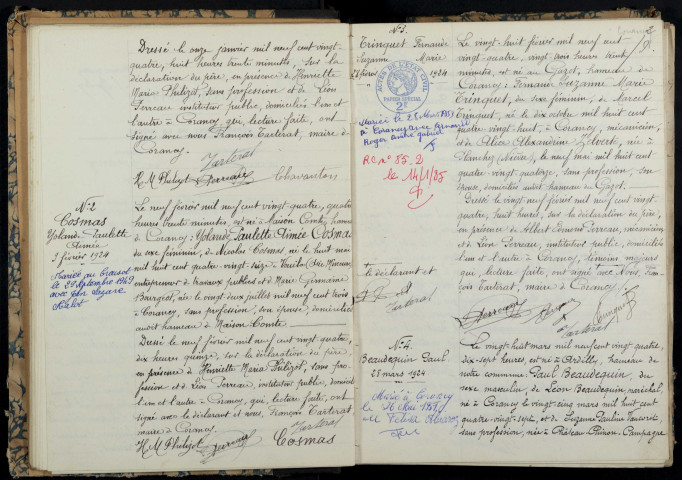 Dressé le onze janvier mil neuf cent vingt-
quatre, huit heures trente minutes, sur la
déclaration du père, en présence de Henriette
Maria Philizot, sans profession et de Léon
Perreau instituteur public, domiciliés l'un et
l'autre à Corancy, qui, lecture faite, ont
signé avec nous François Tarterat, maire de
Corancy.
Tarterat
H. M. Philizot Perreau Chavanton
N° 2
Cosmas
Yolande Paulette
Aimée
9 février 1924
Mariée au
le 29 Septembre 1945
avec
Le neuf février mil neuf cent vingt-quatre, quatre
heures trente minutes, est née à Maison Comte, hameau
de Corancy : Yolande Paulette Aimée Cosmas
du sexe féminin, de Nicolas Cosmas né le huit mai
mil huit cent quatre-vingt-seize à
entrepreneur de travaux publics et de Marie Germaine
Bourgeot, née le vingt deux juillet mil neuf cent trois
à Corancy, sans profession, son épouse, domiciliés
audit hameau de Maison-Comte.
Dressé le neuf février mil neuf cent vingt quatre,
dix heures quinze, sur la déclaration du père,
en présence de Henriette Maria Philizot, sans pro-
fession et de Léon Perreau, instituteur public, domiciliés
l'un et l'autre à Corancy, qui, lecture faite, ont
signé avec le déclarant et nous, François Tarterat
maire à Corancy.
Tarterat
H. M. Philizot Perreau Cosmas
N° 3.
Trinquet Fernande
Suzanne Marie
28 février 1924
ACTES DE L'ETAT CIVIL
PAPIER SPECIAL
2F
Mariée le 28 Mars 1951
à Corancy avec
Roger André Gabriel
R.C. n° 85.2
le 14/1/85
le déclarant et
Le vingt-huit février mil neuf cent
vingt-quatre, vingt-trois heures trente
minutes, est née au Gazot, hameau de
Corancy : Fernande Suzanne Marie
Trinquet, du sexe féminin, de Marcel
Trinquet, né le dix octobre mil huit cent
quatre vingt-huit, à Corancy, mécanicien,
et de Alice Alexandrine, née à
Planchez (Nièvre), le neuf mai mil huit cent
quatre-vingt-quatorze, sans profession, son
épouse, domiciliés audit hameau du Gazot.
Dressé le vingt-neuf février mil neuf cent vingt-
quatre, huit heures, sur la déclaration du père,
en présence de Albert Edmond Perreau, mécanicien
et de Léon Perreau, instituteur public, domiciliés
l'un et l'autre à Corancy, témoins majeurs
qui, lecture faite, ont signé avec Nous, Fran-
çois Tarterat, maire de Corancy.
Tarterat
Perreau
Tarterat
N° 4.
Beaudequin Paul
28 mars 1924
Marié à Corancy
le
avec
Le vingt-huit mars mil neuf cent vingt-quatre,
dix-sept heures, est né à Ardilly, hameau de
notre commune Paul Beaudequin, du
sexe masculin, de Léon Beaudequin, maréchal,
né à Corancy le vingt-cinq mars mil huit cent
quatre-vingt-sept, et de Suzanne Pauline
sans profession, née à Château-Chinon-Campagne